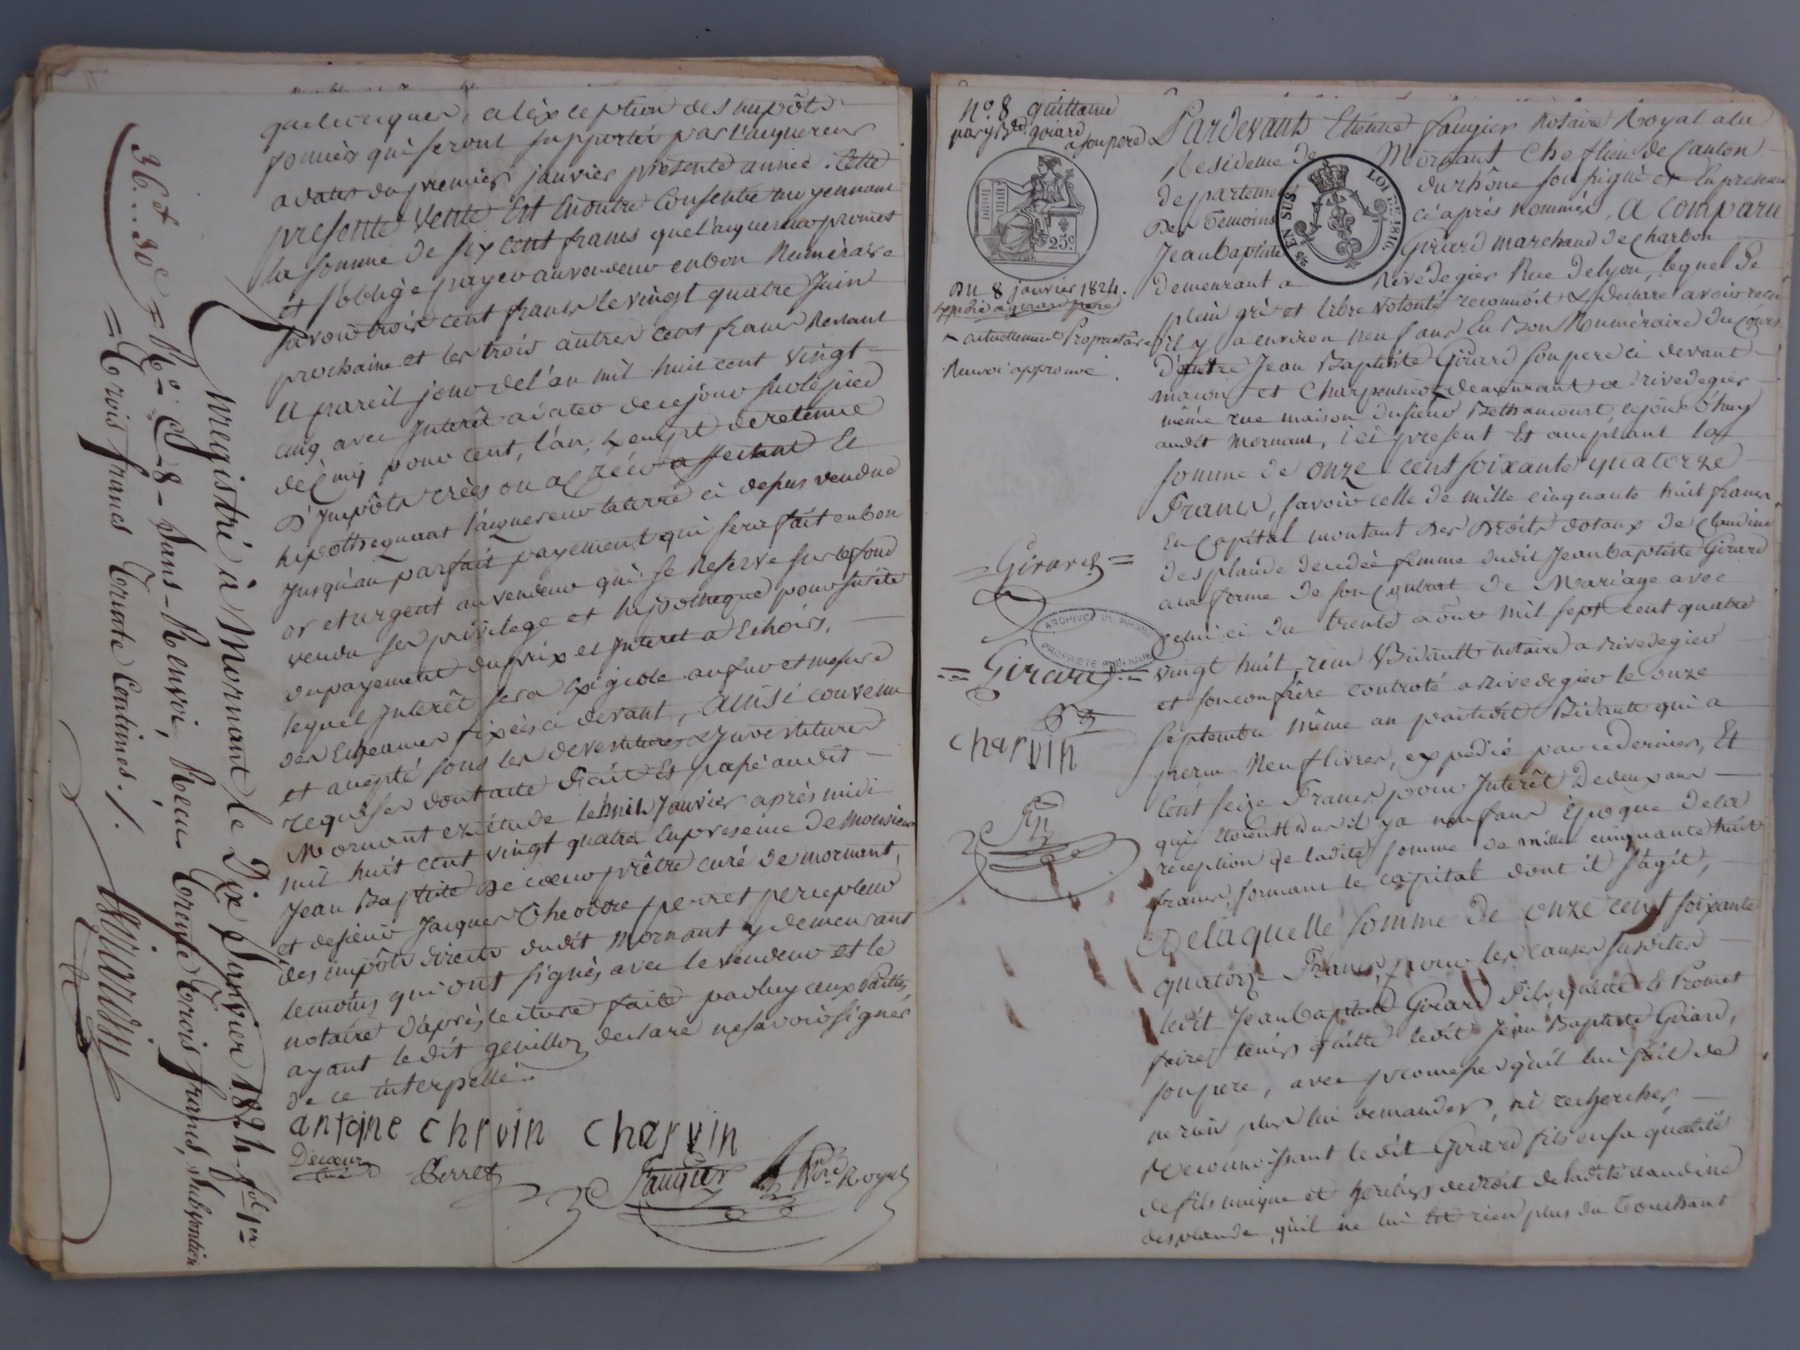 quelconques, a l'exception des impôts
fonciers qui seront supportés par l'acquereur
a dater du premier janvier presente année. Cette
presente vente Est Enoutre Consentie moyennant
la somme de six cent francs que l'acquereur promet
et s'oblige payer au vendeur en bon Numéraire
savoir trois cent francs le vingt quatre Juin
prochain et les trois autres cent francs Restant
a pareil jour de l'an mil huit cent vingt
cinq avec Interêt a dater de ce jour sur le pied
de cinq pour cent, l'an, Exempt de retenue
d'Impôts créés ou a créer affectant Et
hipothequant l'acquereur la terre ci dessus vendue
jusqu'au parfait payement qui sera fait en bon
or et argent au vendeur qui se Reserve sur le fond
vendu ses privilege et hypotheque pour sureté
du payement du prix et Interet a Echoirs,
lequel Interêt sera Exigible au fur et mesure
des Echeances fixées ci devant, ainsi convenu
et accepté sous les devestitures & Investitures
requises dont acte Fait Et passé audit
Mornant en étude le huit Janvier après midi
mil huit cent vingt quatre En presence de Monsieur
Jean Baptiste Decoeur prêtre curé de mornant,
et de sieur Jacques Theodore perret percepteur
des impôts directs dudit Mornant y demeurant
temoins qui ont signés avec le vendeur et le
notaire d'après lecture faite par luy aux parties
ayant le dit declare ne savoir signer
de ce interpellé.
antoine chrvin charvin
Decoeur
curé
Perret
Faugier
Nre Royal
Enregistré à Mornant le Dix Janvier 1824 fol 1er
Ro C. 8 - Sans - Renvoi, Reçu Trente Trois francs, Subvention
= Trois francs Trente Centimes ./.
36.f 30c =
No. 8 quittance
par J. Bte. girard
a son pere
25c.
Du 8 janvier 1824.
Expedié a girard pere
actuellement Proprietaire
Renvoi approuvé
= Girard =
ARCHIVES DU RHÔNE
PROPRIÉTÉ PUBLIQUE
= Girard =
charvin
Pardevant Etienne faugier Notaire Royal a la
Residence de Mornant Chef lieu de Canton
departement du rhône soussigné et En presence
Des temoins ci après nommés, a comparu
EN SUS. LOI DE 1816.
Jean baptiste Girard marchand de charbon
demeurant a Rivedegier Rue de lyon, lequel de
plein gré et libre volonté reconnoit & declare avoir recu
il y a environ neuf ans En bon Numéraire du cours
d'autre Jean Baptiste Girard son pere ci devant
maçon et Charpentier demeurant a rivedegier
même rue maison du sieur Bethancourt, cejourd'huy
audit mornant, ici present Et acceptant la
somme de onze cent soixante quatorze
Francs, savoir celle de mille cinquante huit francs
En Capital montant des Droits dotaux de Claudine
desplaude decedée femme dudit Jean baptiste Girard
a la forme de son Contrat de Mariage avec
celui ci du trente août mil sept cent quatre
vingt huit, reçu Bidault notaire a rivedegier
et son confrère controlé a rivedegier le onze
septembre même an par ledit Bidault qui a
perçu Neuf livres, expedié par ce dernier, Et
Cent seize Francs pour Interêt de deux ans
qui étoient dus il y a neuf ans Epoque de la
reception de ladite somme de mille cinquante huit
francs, formant le capital dont il s'agit,
De laquelle somme de onze cent soixante
quatorze Francs, pour les causes susdites
ledit Jean baptiste Girard Fils quitte Et Promet
faire tenir quitte ledit Jean Baptiste Girard,
son pere, avec promesse qu'il lui fait de
ne rien plus lui demander, ni rechercher,
reconnoissant le dit Girard fils en sa qualité
de fils unique et heritier de droit de ladite claudine
desplaude, qu'il ne lui est rien plus du Touchant